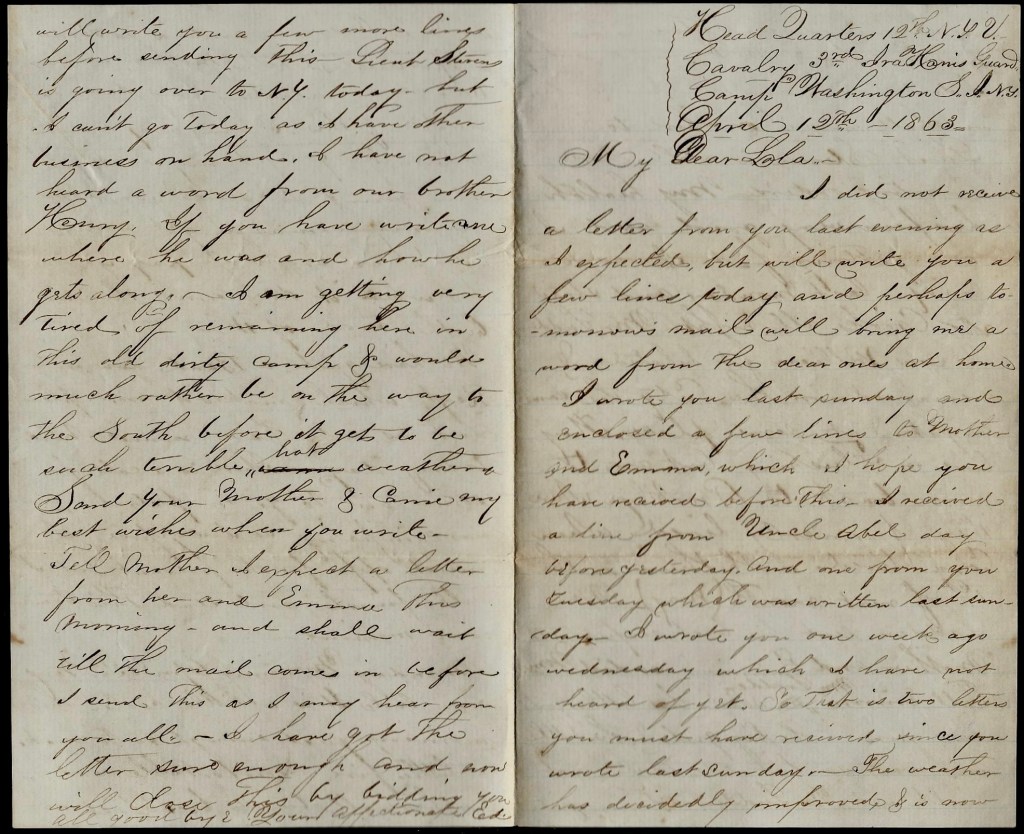 Head Quarters 12th N.Y.V.
Cavalry 3rd Ira Harris Guard
Camp Washington S.I. N.Y.
April 12th - 1863 =
My Dear Lola,-
I did not receive
a letter from you last evening as
I expected, but will write you a
few lines today and perhaps to-
-morrow's mail will bring me a
word from the dear ones at home
I wrote you last sunday and
enclosed a few lines to Mother
and Emma, which I hope you
have recived before this - I received
a line from Uncle Abel day
before yesterday. And one from you
Tuesday which was written last sun-
day - I wrote you one week ago
wednesday which I have not
heard of yet. So That is two letters
you must have reeived since you
wrote last sunday - The weather
has decidedly improved & is now
will write you a few more lines
before sending this Lieut Stevens
is going over to N.Y. today - but
I can't go Today as I have other
business on hand. I have not
heard a word from our brother
Henry. If you have write me
where he was and how he
gets along. - I am getting very
tired of remaining here in
this old dirty camp & would
much rather be on the way to
the South before it gets to be
such terrible hot weather
Send your Mother & Carrie my
best wishes when you write -
Tell Mother I expect a letter
from her and Emma This
Morning - and shall wait
till the mail comes in before
I send This as I may hear from
you all. - I have got The
letter sure enough and now
will close This by bidding you
all good bye Your affectionate Ed.